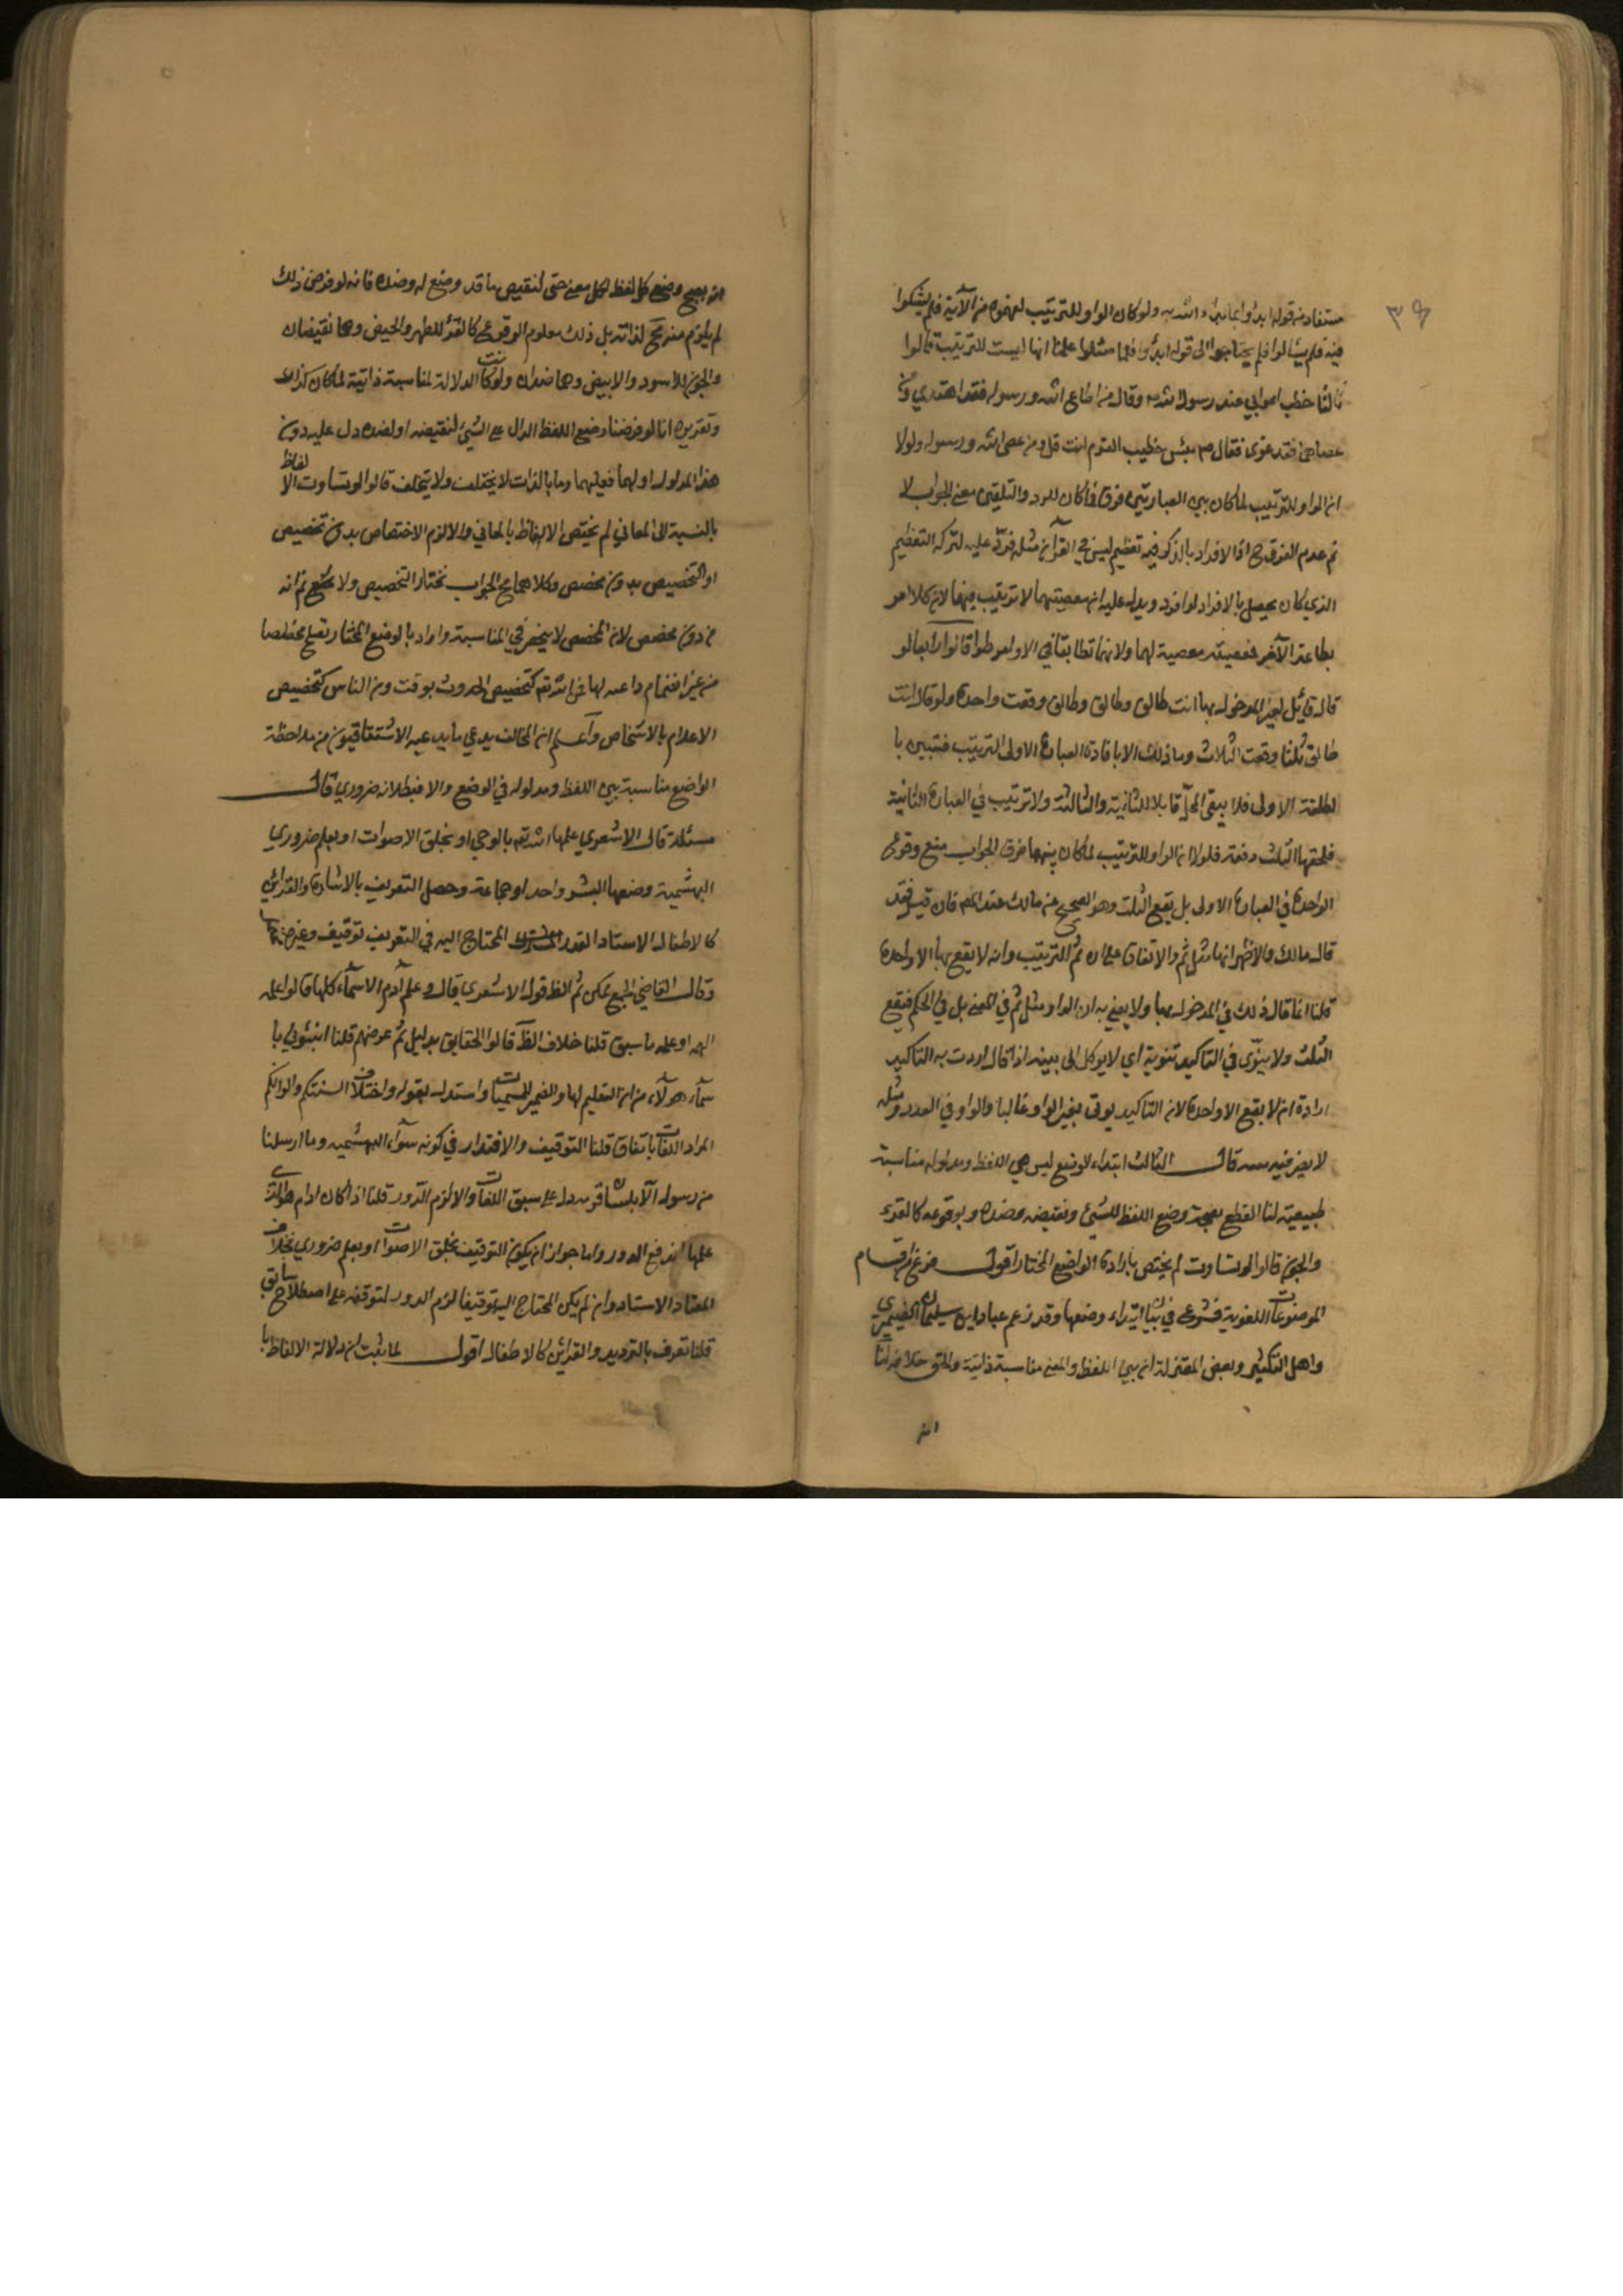 ٣٩
مستفاد من قوله ابدؤا بما بدأ الله به ولو كان الواو للترتيب لفهموه من الآية فلم يشكوا
فيه فلم يسألوا فلم يحتاجوا الى قوله ابدؤا فلما سئلوا علمنا انها ليست للترتيب قالوا
ثالثا خطب اعرابي عند رسول الله وقال من اطاع الله ورسوله فقد اهتدي ومن
عصاهما فقد غوى فقال ص بئس خطيب القوم انت قل ومن عصى الله ورسوله ولولا
ان الواو للترتيب لما كان بين العبارتين فرق فما كان للرد والتلقين معنى الجواب لا
نم عدم الفرق ح اذ الافراد بالذكر فيه تعظيم ليس في القرآن مثله فرد عليه لتركه التعظيم
الذي كان يحصل بالافراد لو افرد ويدل عليه ان معصيتهما لا ترتيب فيها لان كلا امر
بطاعته الآخر فمعصيته معصية لهما ولانهما تطابقا في الاوامر قالوا رابعا لو
قال قائل لغير المدخول بها انت طالق وطالق وطالق وقعت واحدة ولو قال انت
طالق ثلثا وقعت الثلاث وما ذلك الا بافادة العبارة الاولى الترتيب فتبين با
لطلقة الاولى فلا يبقى المحل قابلا للثانية والثالثة ولا ترتيب في العبارة الثانية
فلحقها الثلث دفعة فلولا ان الواو للترتيب لما كان بينهما فرق الجواب منع وقوع
الواحدة في العبارة الاولى بل يقع الثلث وهو الصحيح من مالك عند المصـ فان قيل فقد
قال مالك والاظهر انها مثل ثم والاتفاق على ان ثم للترتيب وانه لا يقع بها الا واحدة
قلنا انما قال ذلك في المدخول بها ولا يعني به ان الواو مثل ثم في المعنى بل في الحكم فيقع
الثلث ولا ينوّى في التاكيد تنوية اي لا يوكل الى بينه اذا قال اردت به التاكيد
ارادة ان لا يقع الا واحدة لان التاكيد يوتى بغير الواو غالبا والواو في العدد ومثله
لا يضر فيه قال الثالث ابتداء الوضع ليس بين اللفظ ومدلوله مناسبة
طبيعية لنا القطع بصحة وضع اللفظ للشيئ ونقيضه وضده وبوقوعه كالقرء
والجون قالوا لو تساوت لم يختص بارادة الواضع المختار اقول فرغ من اقسام
الموضوعات اللغوية فشرع في بيان ابتداء وضعها وقد زعم عباد ابن سليمان الضيمري
واهل التكثير وبعض المعتزلة ان بين اللفظ والمعنى مناسبة ذاتية والحق خلافه لنا
انه
انه يصح وضع كل لفظ لكل معنى حتى لنقيض ما قد وضع له وضده فانه لو فرض ذلك
لم يلزم منه مح لذاته بل ذلك معلوم الوقوع كالقرء للطهر والحيض وهما نقيضان
والجون للاسود والابيض وهما ضدان ولو كانت الدلالة لمناسبة ذاتية لما كان كذلك
وتقريره انا لو فرضنا وضع اللفظ الدال على الشيئ لنقيضه او لضده دل عليه دون
هذا المدلول او لهما فعليهما وما بالذات لا يختلف ولا يتخلف قالوا لو تساوت الالفاظ
بالنسبة الى المعاني لم يختص الالفاظ بالمعاني والا لزم الاختصاص بدون تخصيص
او التخصيص بدون مخصص وكلاهما مح الجواب نختار التخصيص ولا يمتنع نم انه
من دون مخصص لان المخصص لا ينحصر في المناسبة وارادة الواضع المختار تصلح مخصصا
من غير انضمام داعية لها من الله تع كتخصيص الحدوث بوقت ومن الناس كتخصيص
الاعلام بالاشخاص واعلم ان المخالف يدعي ما يدعيه الاشتقاقيون من ملاحظة
الواضع مناسبة بين اللفظ ومدلوله في الوضع والا فبطلانه ضروري قال
مسئلة قال الاشعري علمها الله تع بالوحي او بخلق الاصوات او بعلم ضروري
البهشمية وضعها البشر واحد او جماعة وحصل التعريف بالاشارة والقرائن
كالاطفال الاستاد القدر المحتاج اليه في التعريف توقيف وغيره
وقال القاضي الجميع ممكن ثم الظ قول الاشعري قال وعلم آدم الاسماء كلها قالوا علمه
الهمه او علمه ما سبق قلنا خلاف الظ قالوا الحقايق بدليل ثم عرضهم قلنا انبئوني با
سماء هولاء من ان التعليم لها والضمير للمسميات واستدل بقوله واختلاف السنتكم والوانكم
المراد اللغات باتفاق قلنا التوقيف والاقتدار في كونه سواء البهشمية وما ارسلنا
من رسول الا بلسان قومه دل على سبق اللغات والا لزم الدور قلنا اذا كان ادم هو الذي
علمها اندفع الدور واما جواز ان يكون التوقيف بخلق الاصوات او بعلم ضروري فخلاف
المعتاد الاستاد وان لم يكن المحتاج اليه توقيفا لزم الدور لتوقفه على اصطلاح سابق
قلنا تعرف بالترديد والقرائن كالاطفال اقول لما ثبت ان دلالة الالفاظ با